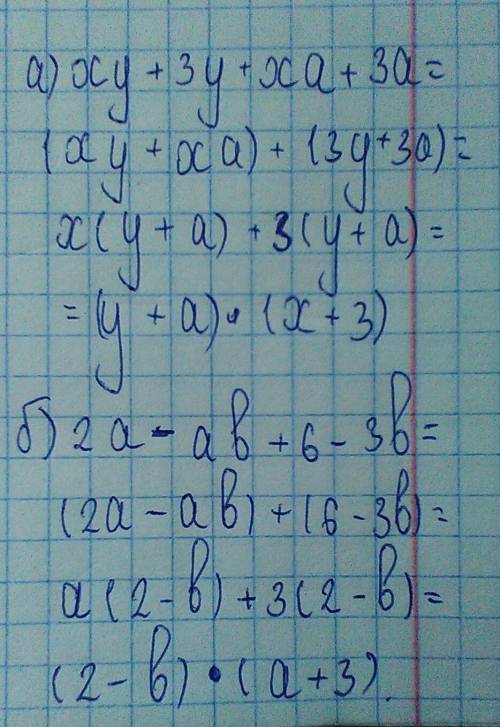 а) xy + 3y + xa + 3a =
(xy + xa) + (3y + 3a) =
x(y + a) + 3(y + a) =
= (y + a) · (x + 3)
б) 2a - ab + 6 - 3b =
(2a - ab) + (6 - 3b) =
a(2 - b) + 3(2 - b) =
(2 - b) · (a + 3).